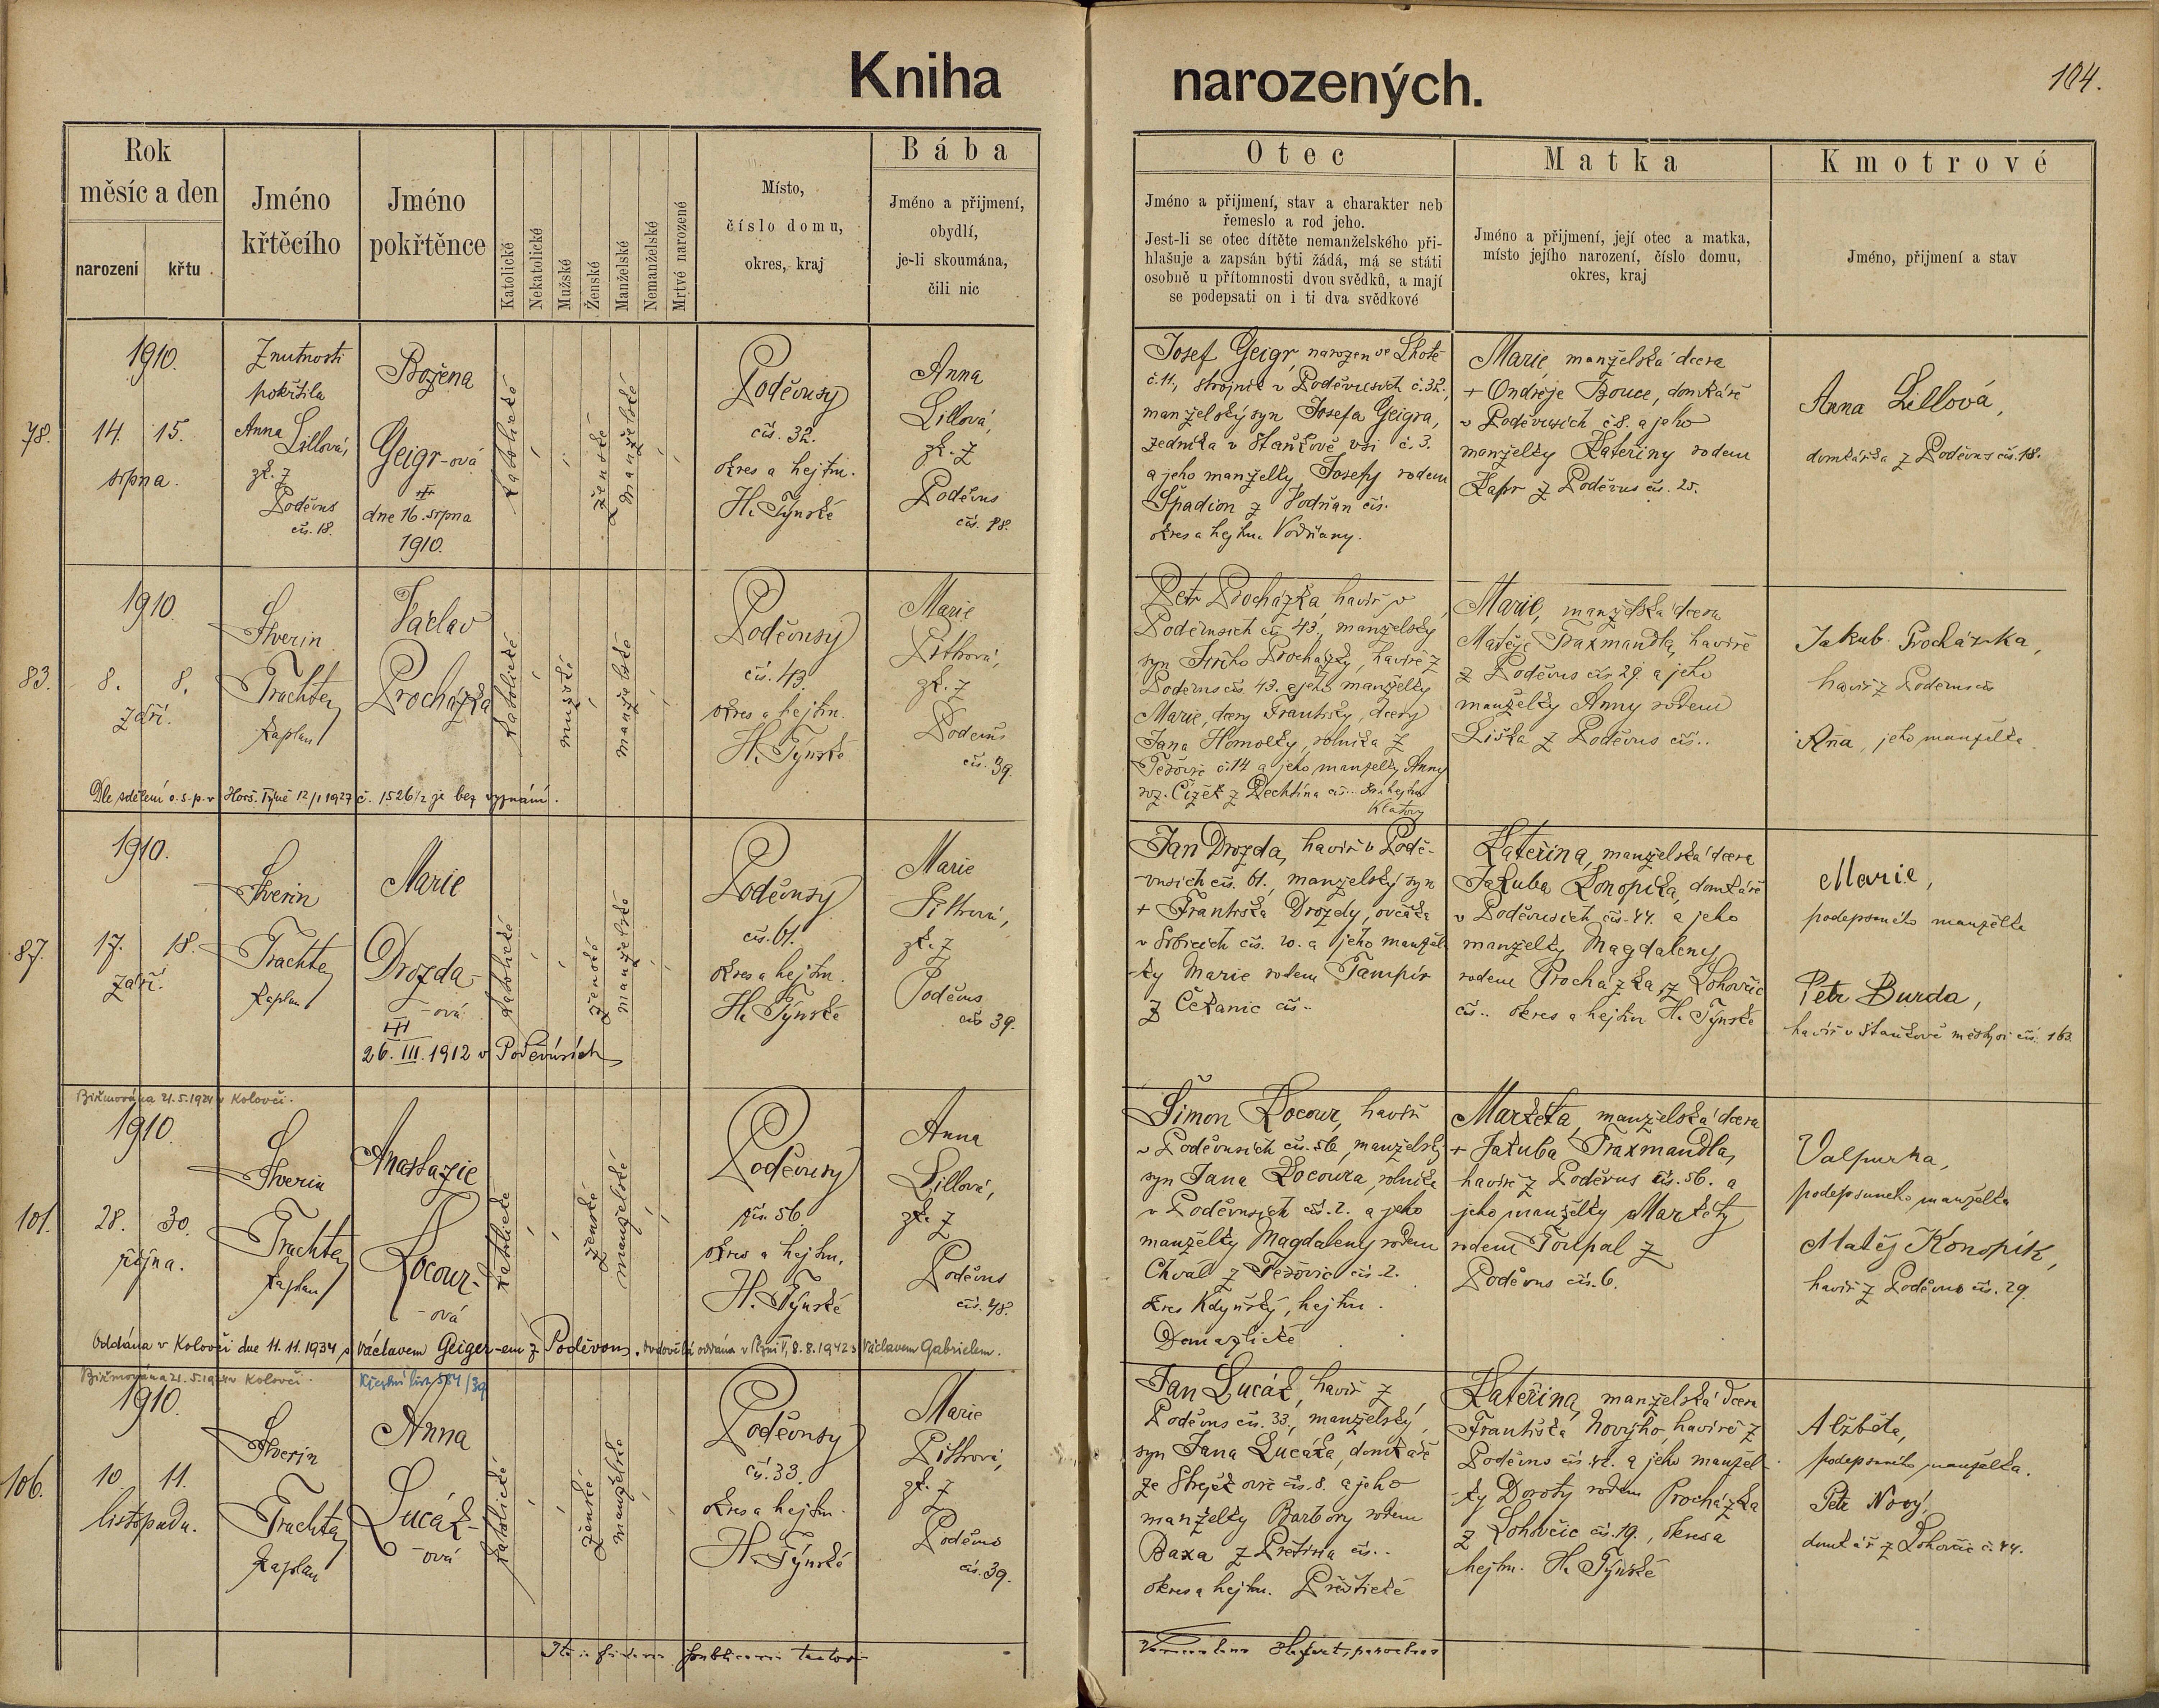 Kniha narozených.
104.
Rok
měsíc a den
narození
křtu
Jméno
křtěcího
Jméno
pokřtěnce
Katolické
Nekatolické
Mužské
Ženské
Manželské
Nemanželské
Mrtvé narozené
Místo,
číslo domu,
okres, kraj
Bába
Jméno a přijmení,
obydlí,
je-li skoumána,
čili nic
Otec
Jméno a přijmení, stav a charakter neb
řemeslo a rod jeho.
Jest-li se otec dítěte nemanželského při-
hlašuje a zapsán býti žádá, má se státi
osobně u přítomnosti dvou svědků, a mají
se podepsati on i ti dva svědkové
Matka
Jméno a přijmení, její otec a matka,
místo jejího narození, číslo domu,
okres, kraj
Kmotrové
Jméno, přijmení a stav
78.
1910.
14. 15.
srpna.
Z nutnosti
pokřtila
Anna
Lillová,
zk. z
Poděvus
čís. 18.
Božena
Geigr-ová
dne 16. srpna
1910.
katolické
ženské
manželské
Poděvusy
čís. 32.
okres a hejtm.
H. Týnské
Anna
Lillová,
zk. z
Poděvus
čís. 18.
Josef Geigr, narozen ve Lhotě
č. 11, strojník v Poděvusích č. 32.,
manželský syn Josefa Geigra,
zedníka v Staňkově vsi č. 3.
a jeho manželky Josefy rodem
Špadion z Vodňan čís.
okres a hejtm. Vodňany.
Marie, manželská dcera
+ Ondřeje Bouce, domkáře
v Poděvusích č. 8. a jeho
manželky Kateřiny rodem
Kapr z Poděvus čís. 25.
Anna Lillová,
domkářka z Poděvus čís. 18.
83.
1910.
8. 8.
září.
Severin
Trachta,
kaplan
Václav
Procházka
katolické
mužské
manželské
Poděvusy
čís. 43.
okres a hejtm.
H. Týnské
Marie
Pittrová,
zk. z
Poděvus
čís. 39.
Petr Procházka, havíř v
Poděvusích čís. 43, manželský
syn Jiřího Procházky, havíře z
Poděvus čís. 43. a jeho manželky
Marie, dcery Františky, dcery
Jana Homolky, rolníka z
č. 14 a jeho manželky Anny
roz. Čížek z Dechtína čís.. hejtm.
Klatovy
Marie, manželská dcera
Matěje Traxmandla, havíře
z Poděvus čís. 29. a jeho
manželky Anny rodem
Liška z Poděvus čís..
Jakub Procházka,
havíř z Poděvus čís
Anna, jeho manželka.
Dle sdělení o.s.p. v Horš. Týně 12/1 1927 č. 1526/2 je bez vyznání.
87.
1910.
17. 18.
září.
Severin
Trachta,
kaplan
Marie
Drozda-
-ová
26. III. 1912 v Poděvusích
katolické
ženské
manželské
Poděvusy
čís. 61.
okres a hejtm.
H. Týnské
Marie
Pittrová,
zk. z
Poděvus
čís. 39.
Jan Drozda, havíř v Podě-
vusích čís. 61., manželský syn
+ Františka Drozdy, ovčáka
v Srbicích čís. 20. a jeho manžel-
ky Marie rodem Tampír
z Čekanic čís..
Kateřina, manželská dcera
Jakuba Konopíka, domkáře
v Poděvusích čís. 44. a jeho
manželky Magdaleny
rodem Procházka z Lohovčic
čís.. okres a hejtm H. Týnské
Marie,
podepsaného manželka
Petr Burda,
havíř v Staňkově městysi čís. 163.
Biřmována 21.5.1924 v Kolovči.
101.
1910.
28. 30.
října.
Severin
Trachta,
kaplan
Anastazie
Kocour-
-ová
katolické
ženské
manželské
Poděvusy
čís. 56
okres a hejtm.
H. Týnské
Anna
Lillová,
zk. z
Poděvus
čís. 48.
Šimon Kocour, havíř
v Poděvusích čís. 56, manželský
syn Jana Kocoura, rolníka
v Poděvusích čís. 2. a jeho
manželky Magdaleny rodem
Chval z čís. 2.
okres Kdyňský, hejtm.
Domažlické
Markéta, manželská dcera
+ Jakuba Traxmandla,
havíře z Poděvus čís. 56. a
jeho manželky Markéty
rodem Toupal z
Poděvus čís. 6.
Valpurka,
podepsaného manželka
Matěj Konopík,
havíř z Poděvus čís. 29.
Oddána v Kolovči dne 11.11.1934 s Václavem Geiger-em z Poděvous. oddána v Plzni V, 8.8.1942 s Václavem Gabrielem.
Biřmována 21.5.1924 v Kolovči.
Křestní list 584/39
106.
1910.
10. 11.
listopadu.
Severin
Trachta,
kaplan
Anna
Lucák-
-ová
katolické
ženské
manželské
Poděvusy
čís. 33.
okres a hejtm.
H. Týnské
Marie
Pittrová,
zk. z
Poděvus
čís. 39.
Jan Lucák, havíř z
Poděvus čís. 33, manželský
syn Jana Lucáka, domkáře
ze čís. 8. a jeho
manželky Barbory rodem
Baxa z Přetína čís..
okres a hejtm. Přeštické
Kateřina, manželská dcera
Františka Nového, havíře z
Poděvus čís. 42. a jeho manžel-
ky Doroty rodem Procházka
z Lohovčic čís. 19., okres a
hejtm. H. Týnské
Alžběta,
podepsaného manželka.
Petr Nový,
domkář z Lohovčic č. 44.